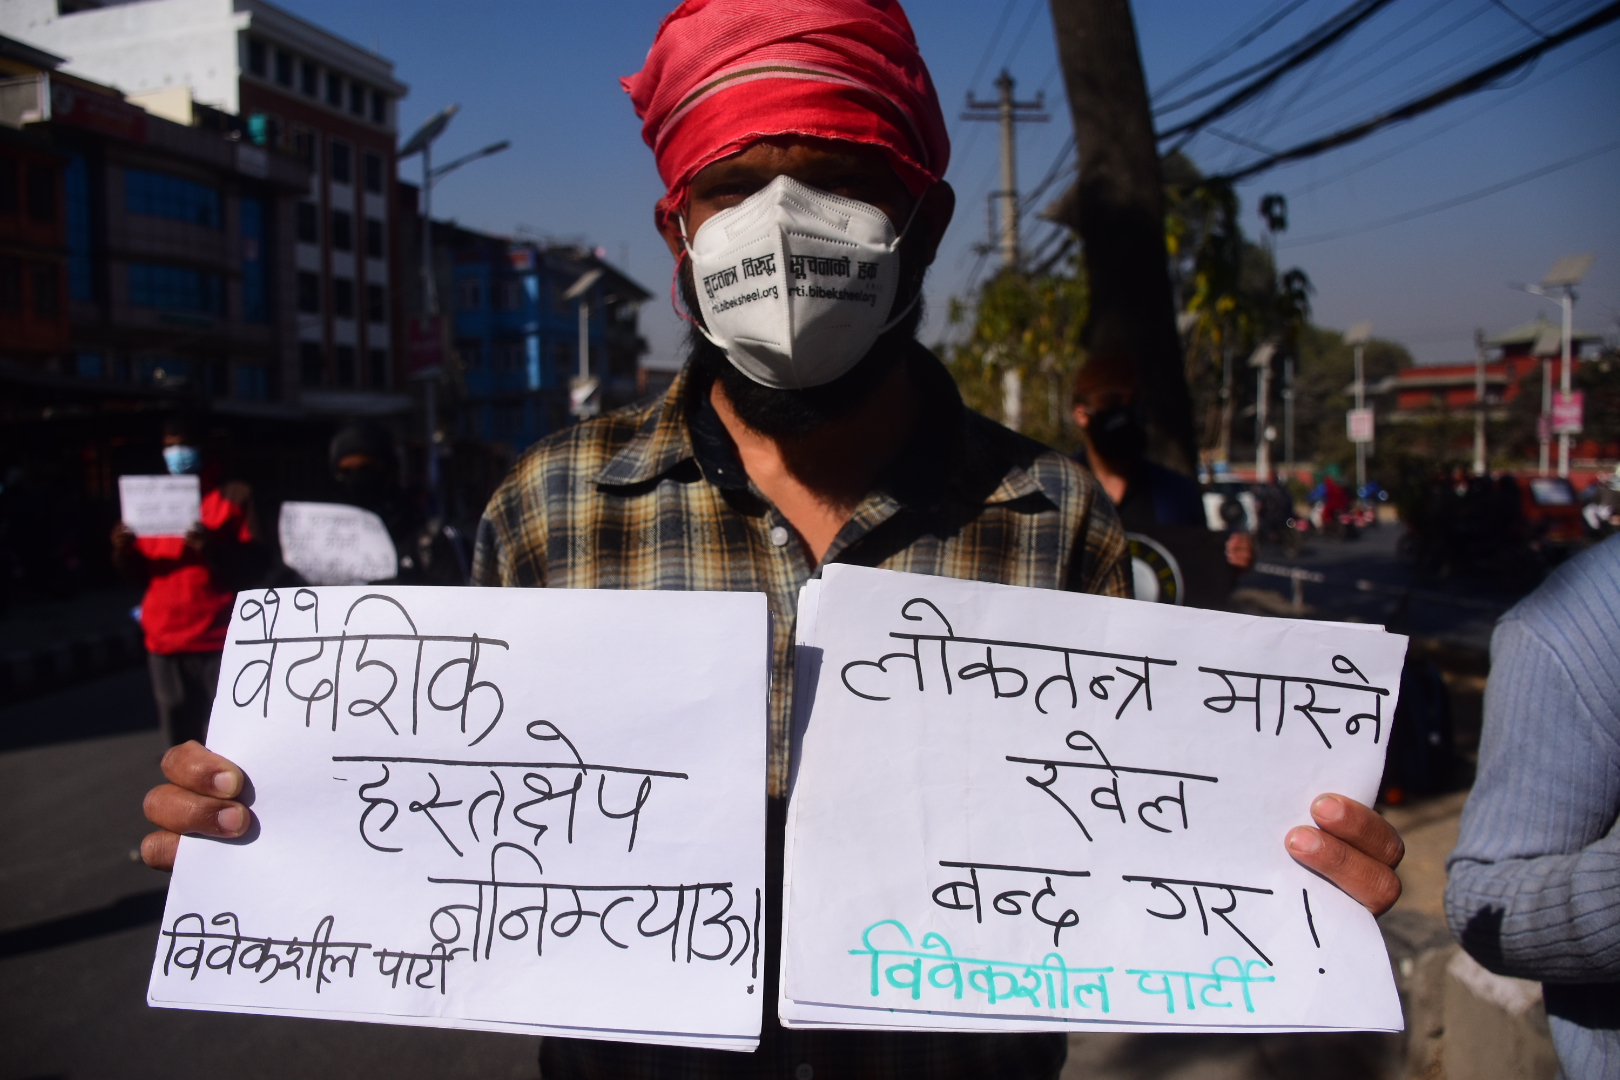 लुटतन्त्र विरुद्ध सूचनाको हक
rti.bibeksheel.org rti.bibeksheel.org
वैदेशिक
हस्तक्षेप
ननिम्त्याऊ!
विवेकशील पार्टी
लोकतन्त्र मास्ने
खेल
बन्द गर!
विवेकशील पार्टी